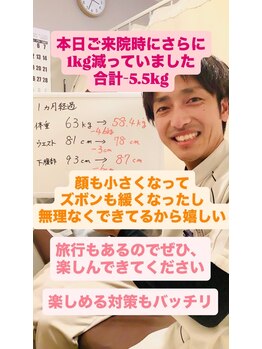 本日ご来院時にさらに
1kg減っていました
合計-5.5kg
1ヵ月経過
体重 63kg → 58.4kg
-4.6kg
ウエスト 81cm → 78cm
-3cm
下腹部 93cm → 87cm
顔も小さくなって
ズボンも緩くなったし
無理なくできてるから嬉しい
旅行もあるのでぜひ、
楽しんできてください
楽しめる対策もバッチリ